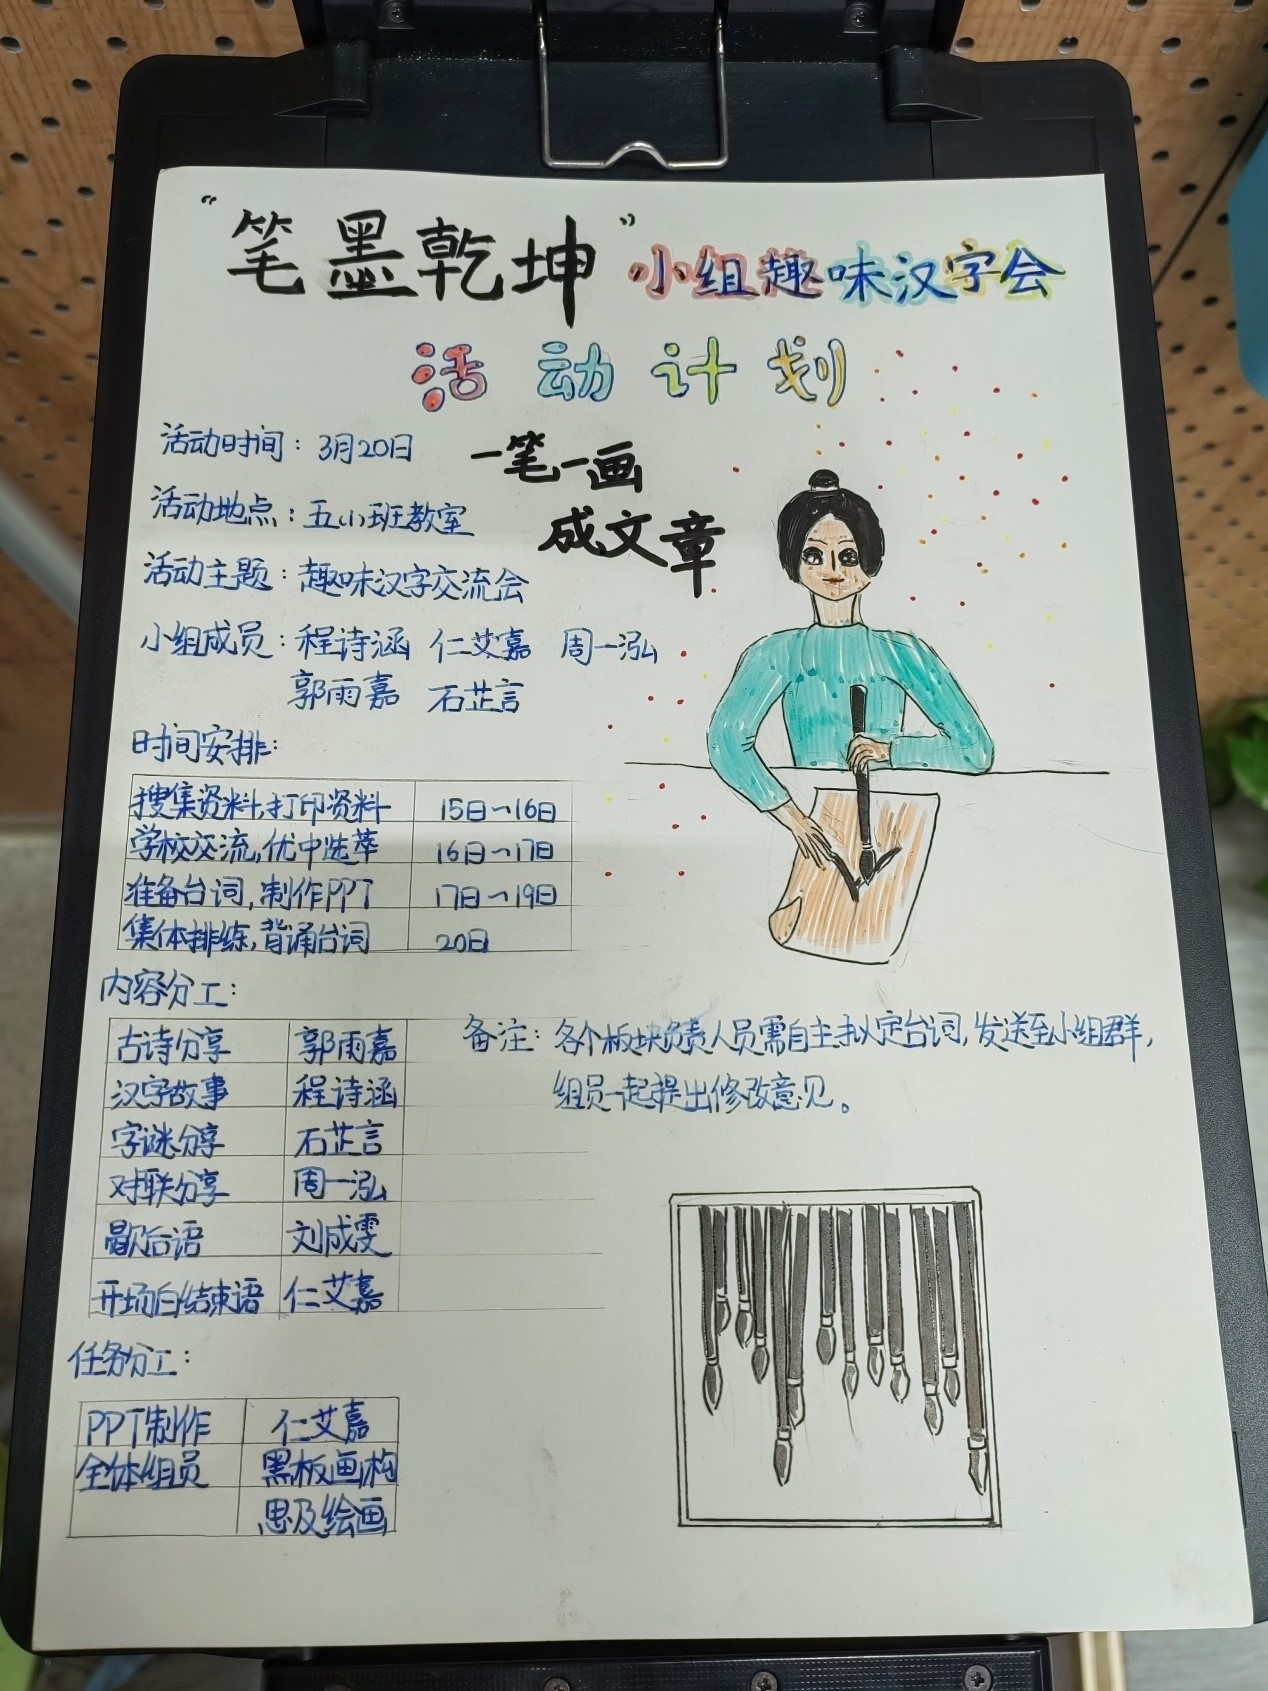 “笔墨乾坤”小组趣味汉字会
活动计划
活动时间：3月20日
一笔一画
成文章
活动地点：五小班教室
活动主题：趣味汉字交流会
小组成员：程诗涵 仁艾嘉 周一泓
郭雨嘉 石芷言
时间安排：
搜集资料,打印资料 15日~16日
学校交流,优中选萃 16日~17日
准备台词,制作PPT 17日~19日
集体排练,背诵台词 20日
内容分工：
古诗分享 郭雨嘉
汉字故事 程诗涵
字谜分享 石芷言
对联分享 周一泓
歇后语 刘成雯
开场白结束语 仁艾嘉
备注：各个板块负责人员需自主拟定台词,发送至小组群,
组员一起提出修改意见。
任务分工：
PPT制作 仁艾嘉
全体组员 黑板画构
思及绘画